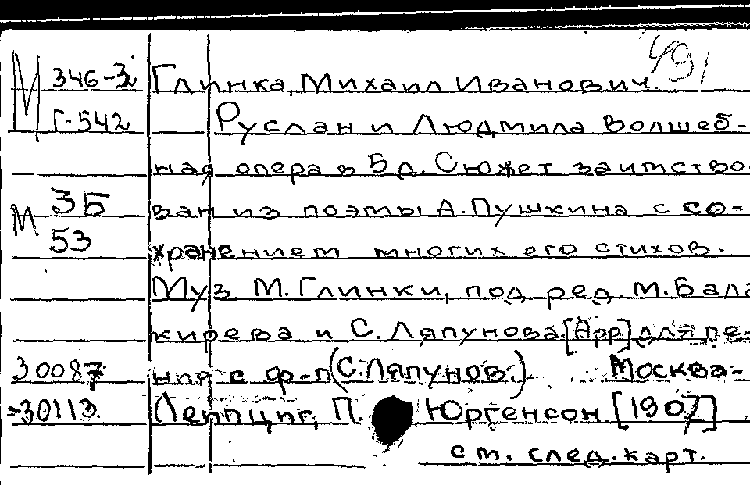 491
М 346-3 Глинка, Михаил Иванович.
Г-542 Руслан и Людмила Волшеб-
ная опера в 5 д. Сюжет заимство
М 35 ван из поэмы А. Пушкина с со-
53 хранением многих его стихов.
Муз М. Глинки, под ред. М. Бала
кирева и С. Ляпунова [Арр] для пе
30087 ния с ф-п (С. Ляпунов.) Москва-
-30113. Лейпциг, П. Юргенсон [1907]
см. след. карт.